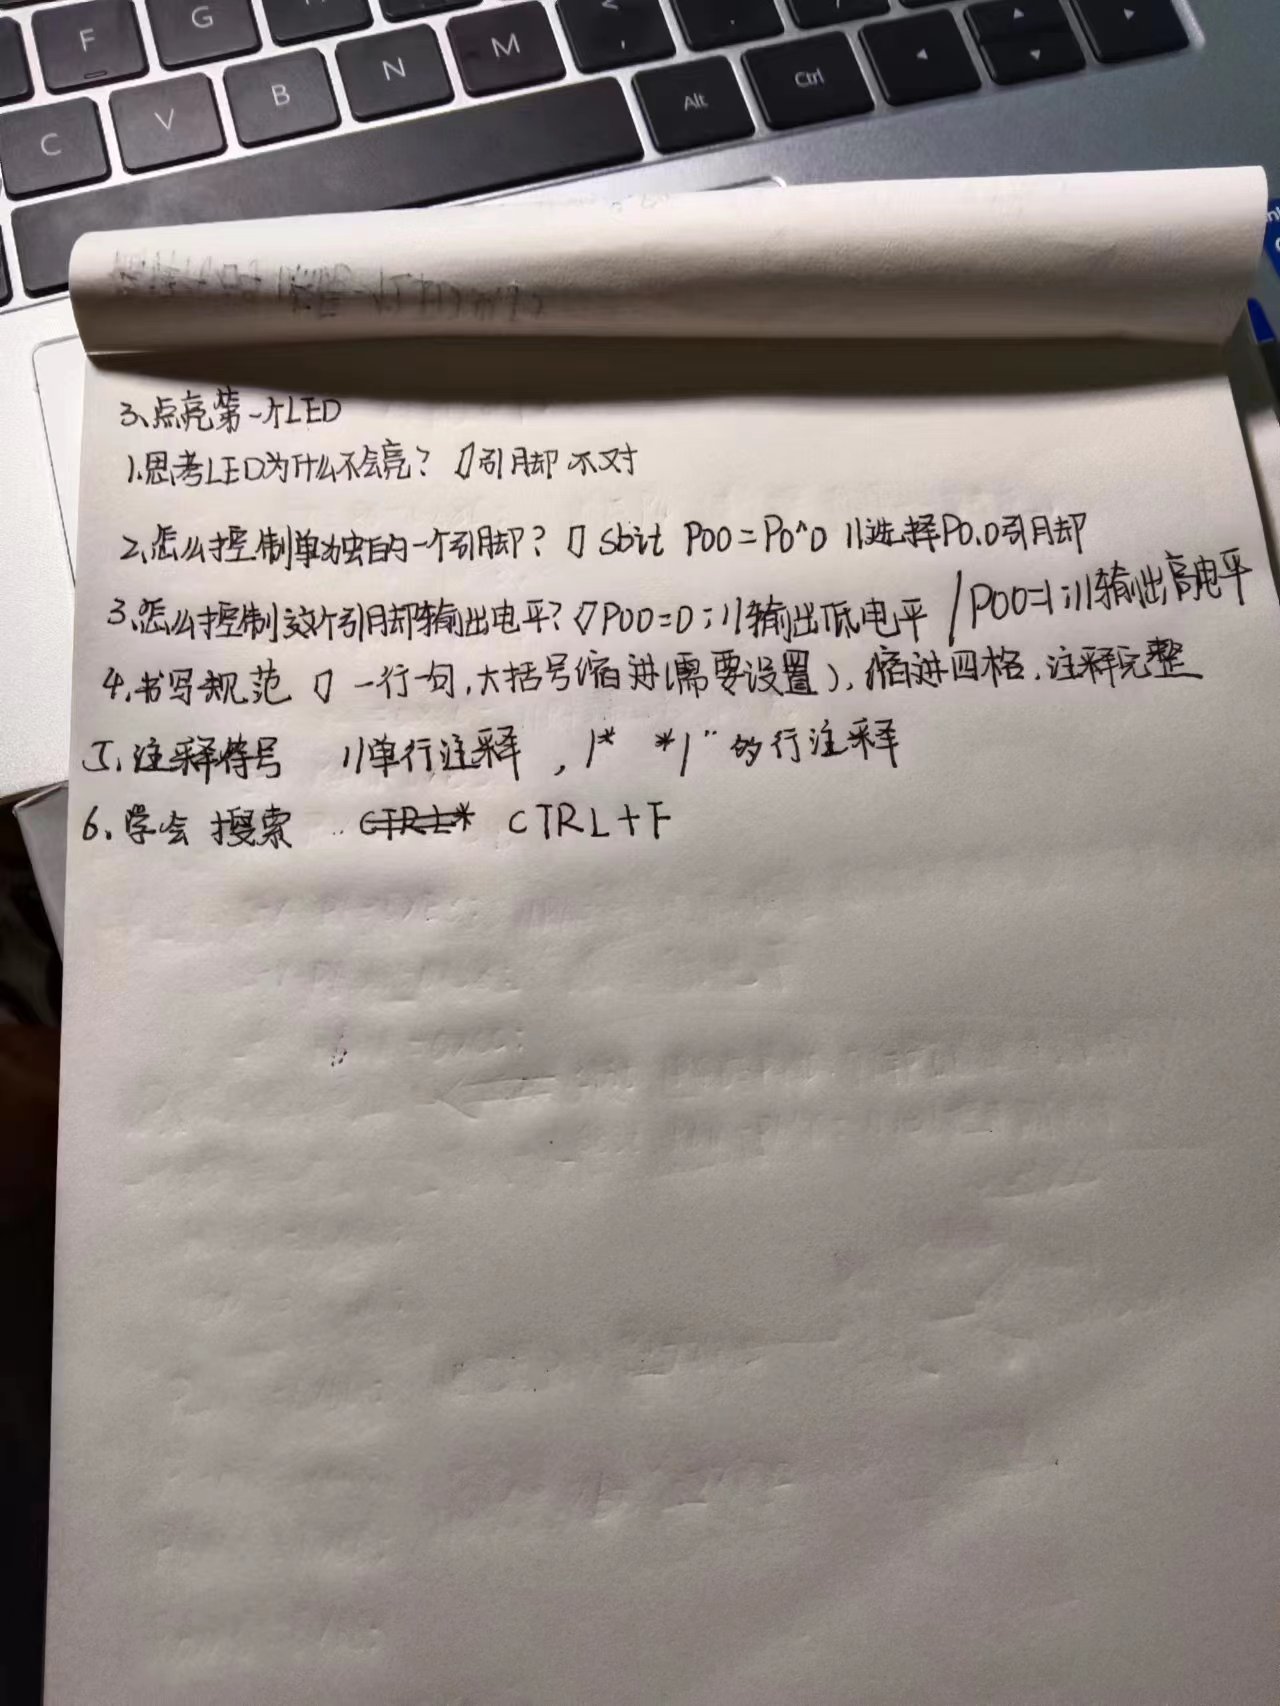 F
G
C
V
B
N
M
Alt
Ctrl
3、点亮第一个LED
1.思考LED为什么不会亮? 引脚不对
2、怎么控制单独的一个引脚? sbit P00=P0^0 //选择P0.0引脚
3、怎么控制这个引脚输出电平? P00=0;//输出低电平 /P00=1;//输出高电平
4、书写规范 一行一句,大括号缩进(需要设置),缩进四格,注释完整
5、注释符号 //单行注释 ,/* */" 的行注释
6、学会搜索 CTRL+F